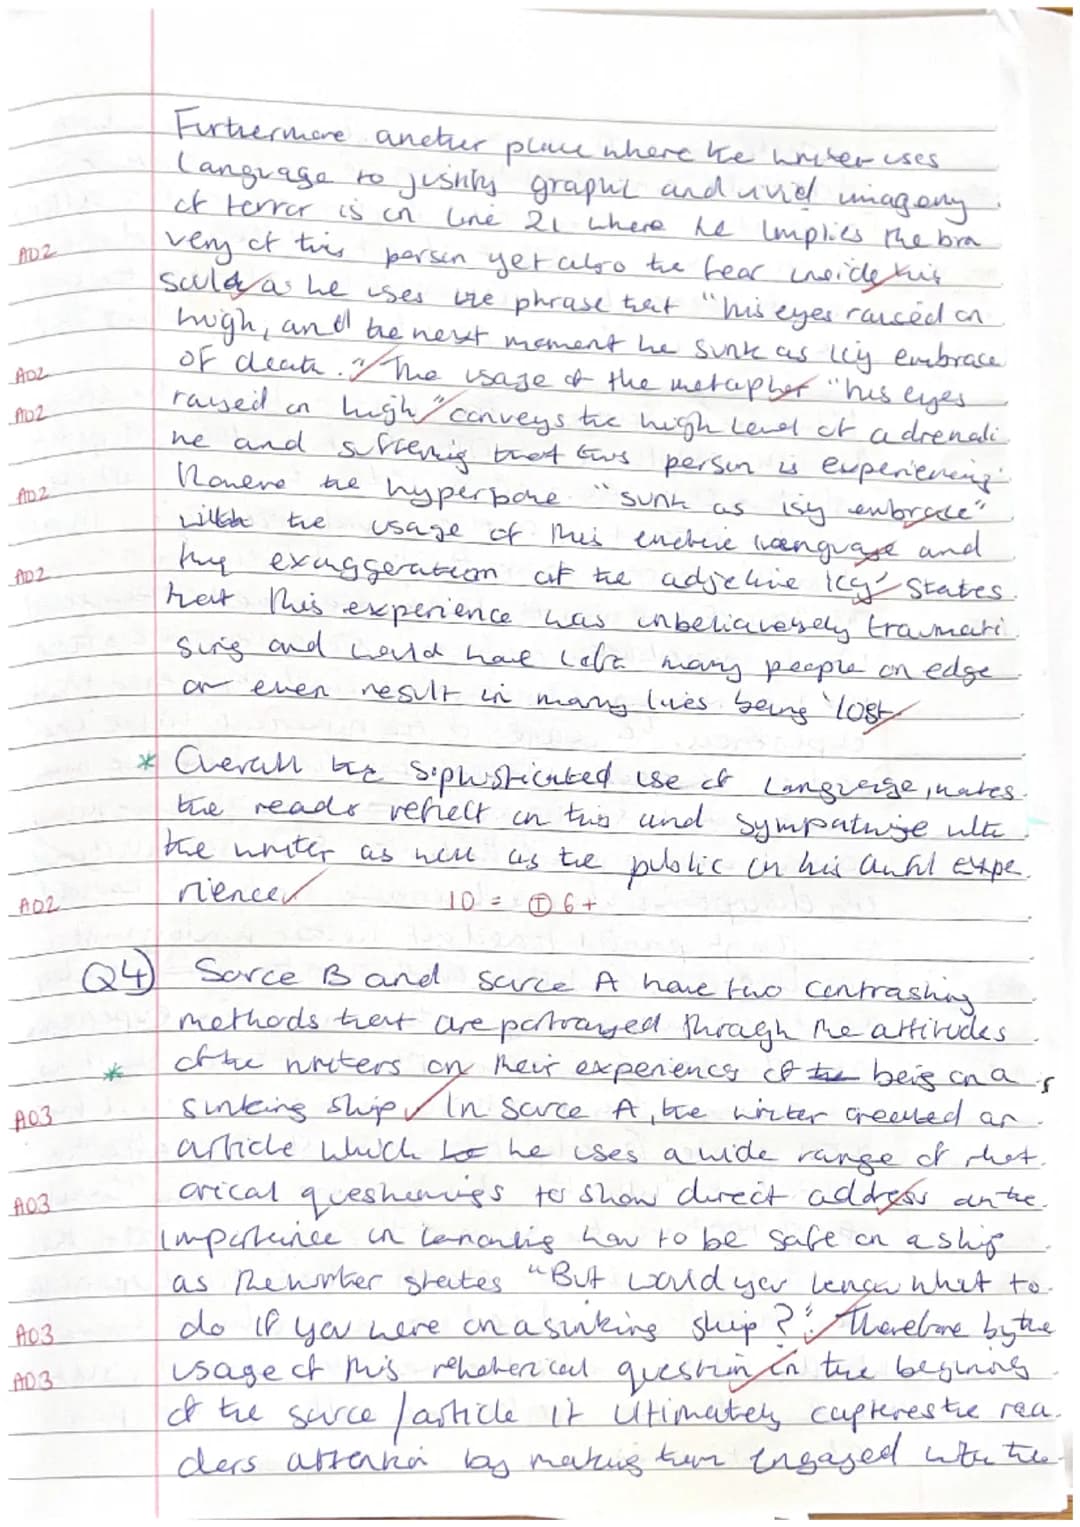 Furthermore another place where the writer uses
language to justify graphic and vivid imagery
of terror is in line 21 where he implies the bra
AO2 very of this person yet also the fear inside his
sould as he uses the phrase that "his eyes raised on
high, and the next moment he sunk as icy embrace
AO2 of death." The usage of the metapher "his eyes
AO2 raised on high" conveys the high level of adrenali
ne and suffering that this person is experiencing
AO2 the hyperbole "sunk as isy embrace"
with the usage of this emotive language and
AO2 the exaggeration of the adjective 'icy' states
that this experience was unbelievabely traumati
sing and would have left many people on edge
or even result in many lives being 'lost
* Overall the sophisticated use of language, makes
the reader reflect on this and sympathise with
the writer as well as the public on his awful expe
AO2 rience 10 = I 6+
Q4) Sorce B and source A have two contrasting
methods that are portrayed through the attitudes
* of the writers on their experiences of the being on a
AO3 sinking ship. In sorce A, the writer created an
article which he uses a wide range of rhet
AO3 orical questionings to show direct address on the
importance in knowing how to be safe on a ship
as the writer states "But would you know what to
AO3 do if you were on a sinking ship?". Therefore by the
AO3 usage of this rhetherical question in the begining
of the source / article it ultimately captures the rea
ders attention by making them engaged with the